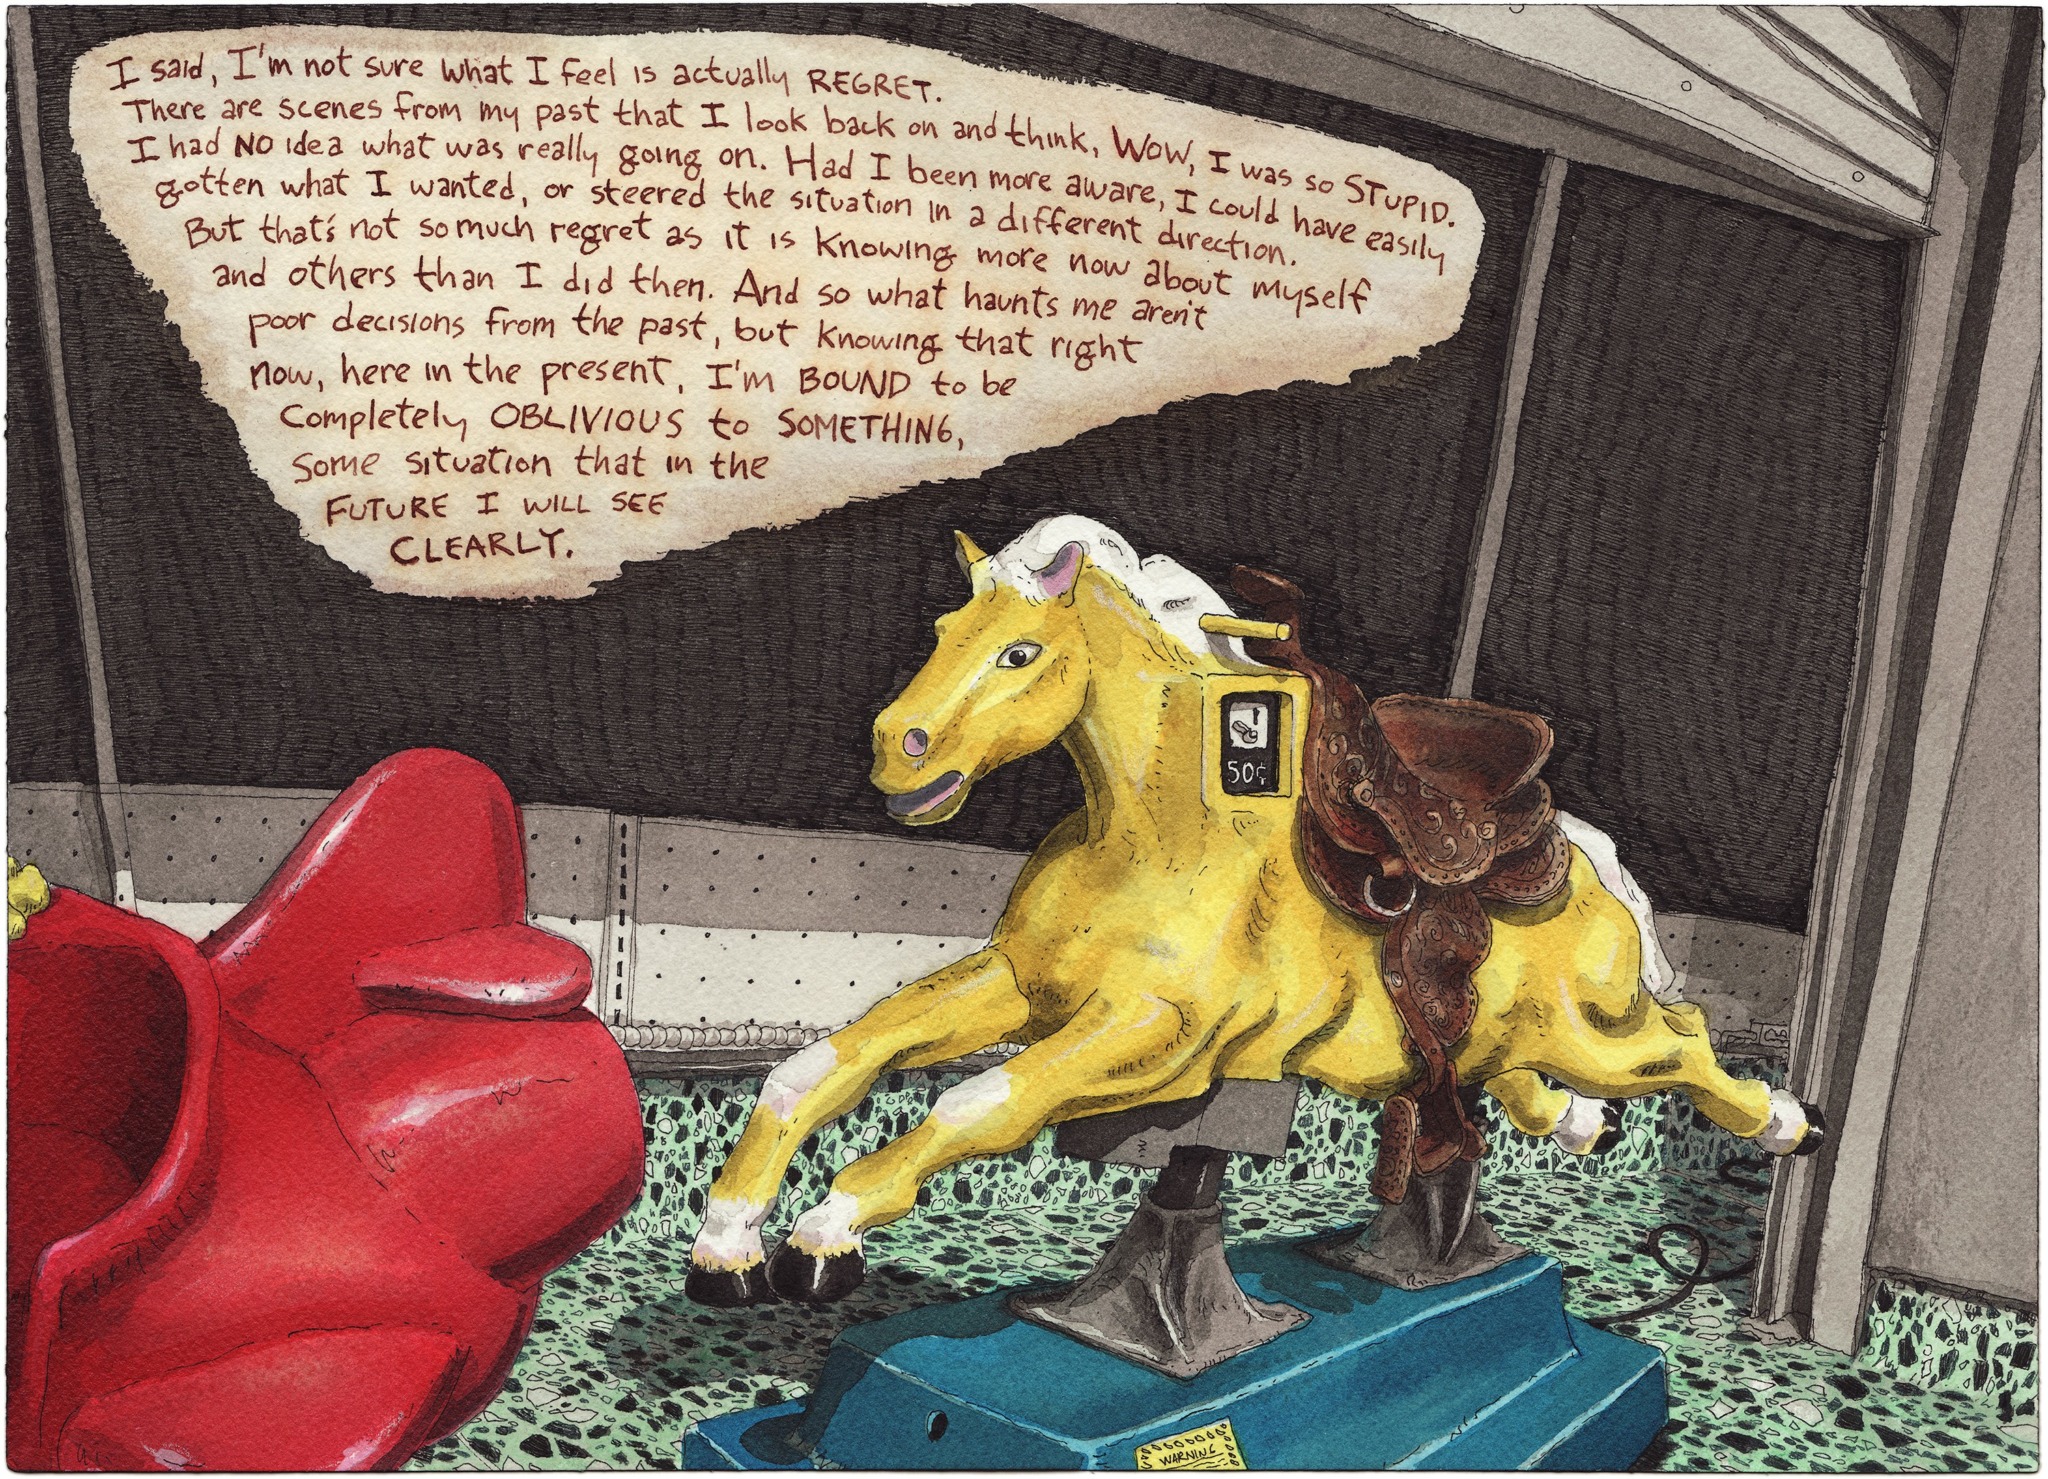 I said, I'm not sure what I feel is actually REGRET.
There are scenes from my past that I look back on and think, WOW, I was so STUPID.
I had NO idea what was really going on. Had I been more aware, I could have easily
gotten what I wanted, or steered the situation in a different direction.
But that's not so much regret as it is knowing more now about myself
and others than I did then. And so what haunts me aren't
poor decisions from the past, but knowing that right
now, here in the present, I'm BOUND to be
completely OBLIVIOUS to SOMETHING,
some situation that in the
FUTURE I WILL SEE
CLEARLY.
50¢
WARNING